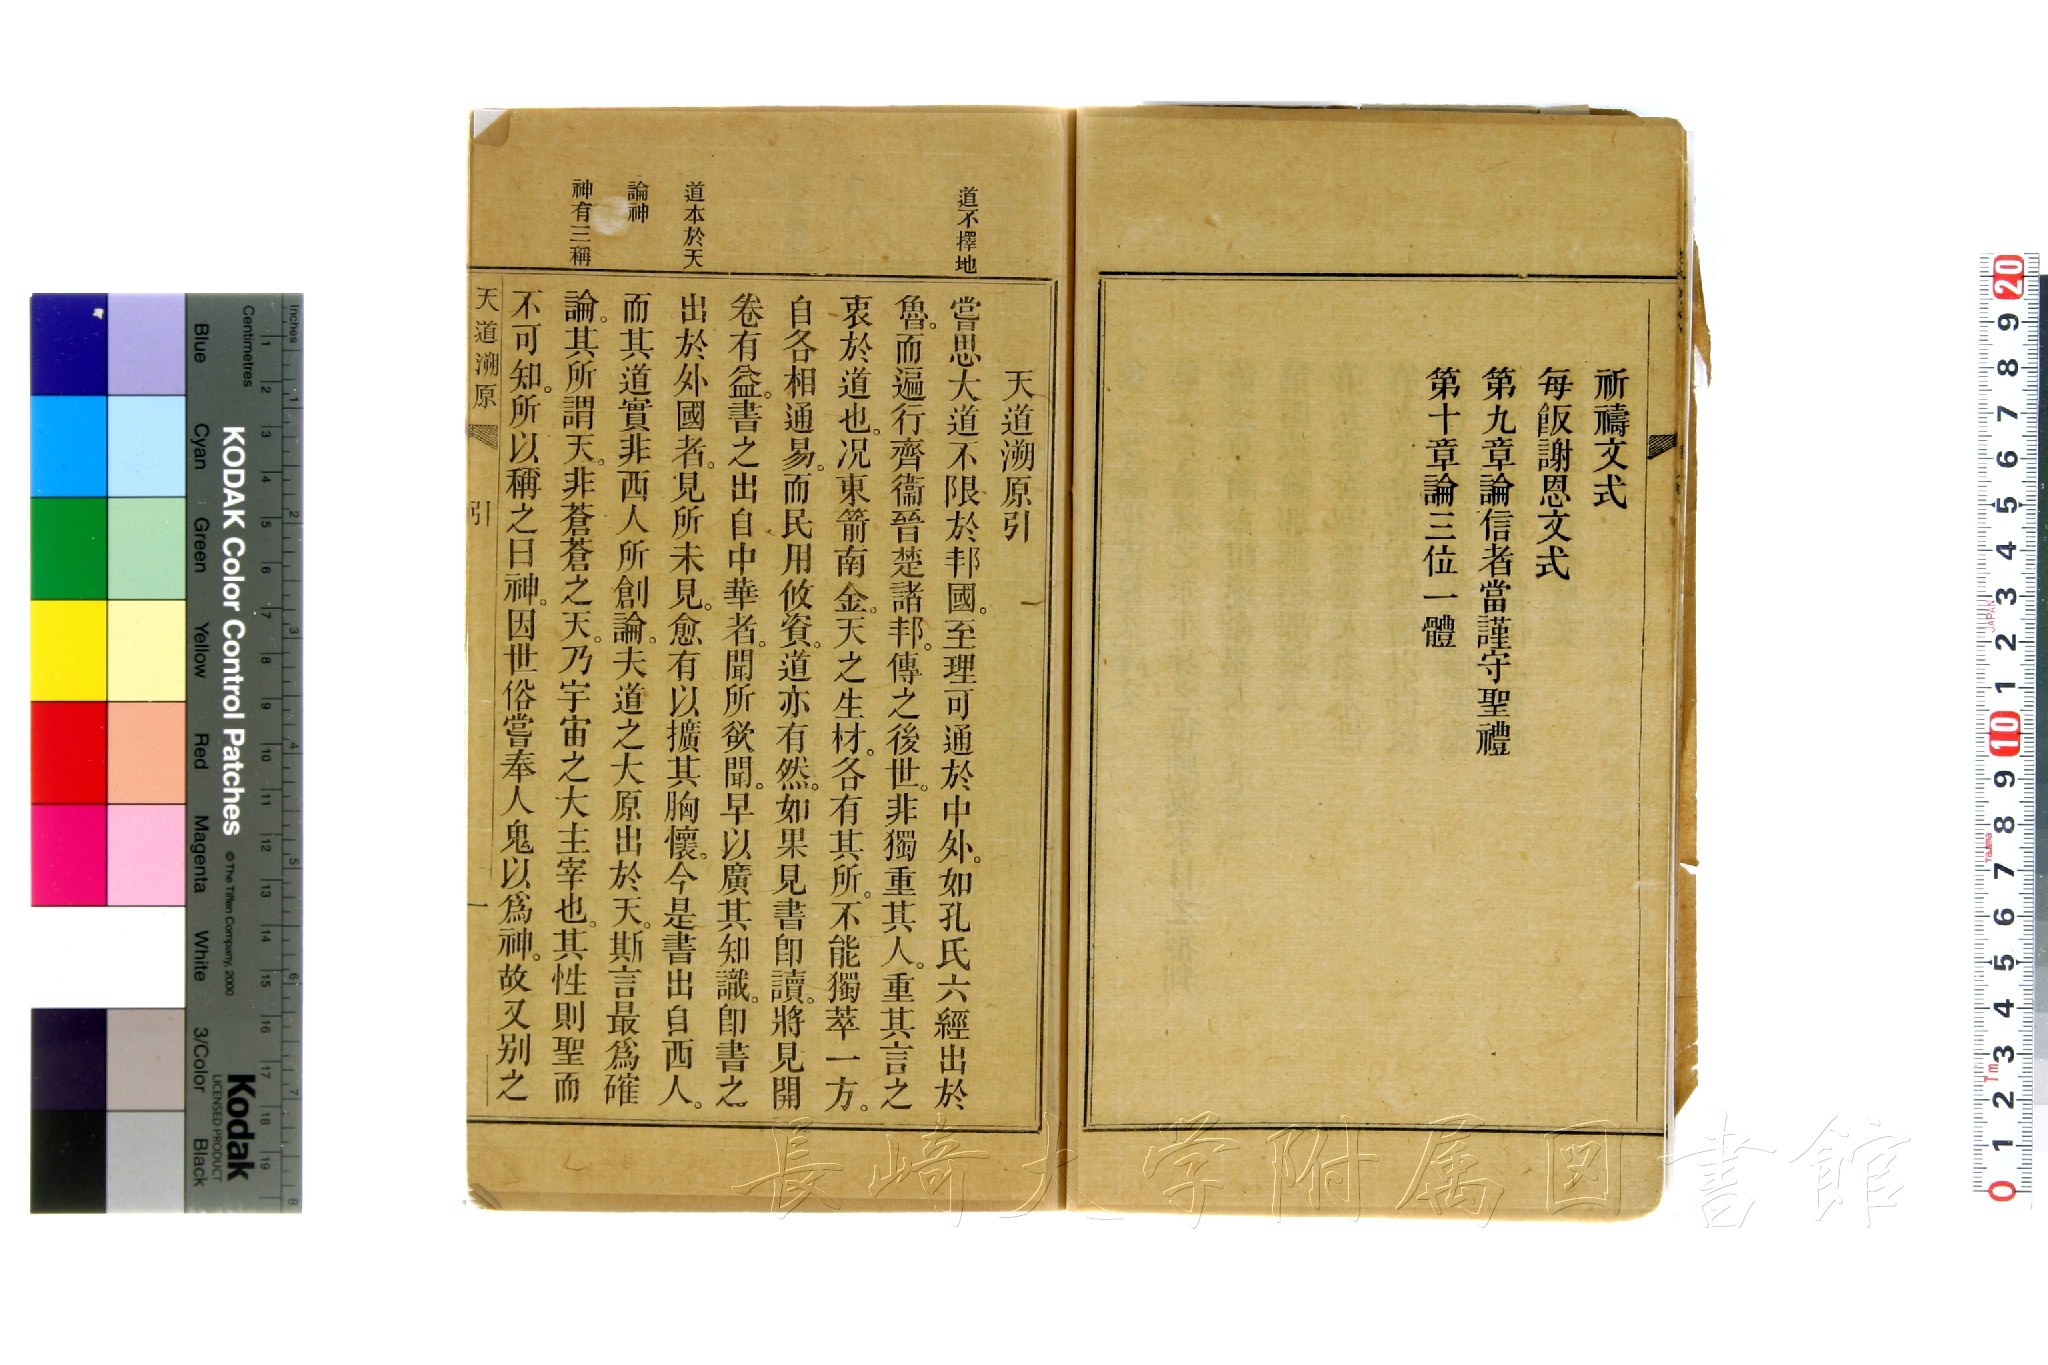 祈禱文式
每飯謝恩文式
第九章論信者當謹守聖禮
第十章論三位一體
天道溯原引
道不擇地
嘗思大道不限於邦國。至理可通於中外。如孔氏六經出於
魯。而遍行齊衞晉楚諸邦。傳之後世。非獨重其人。重其言之
衷於道也。况東箭南金。天之生材。各有其所。不能獨萃一方。
自各相通易。而民用攸資。道亦有然。如果見書卽讀。將見開
卷有益。書之出自中華者。聞所欲聞。早以廣其知識。卽書之
道本於天
出於外國者。見所未見。愈有以擴其胸懷。今是書出自西人。
論神
而其道實非西人所創論。夫道之大原出於天。斯言最爲確
神有三稱
論。其所謂天。非蒼蒼之天。乃宇宙之大主宰也。其性則聖而
不可知。所以稱之曰神。因世俗嘗奉人鬼以爲神。故又別之
天道溯原 引 一
長崎大学附属図書館
KODAK Color Control Patches © The Tiffen Company, 2000
Kodak
LICENSED PRODUCT
Inches 1 2 3 4 5 6 7 8
Centimetres 1 2 3 4 5 6 7 8 9 10 11 12 13 14 15 16 17 18 19
Blue Cyan Green Yellow Red Magenta White 3/Color Black
20 9 8 7 6 5 4 3 2 1 10 9 8 7 6 5 4 3 2 1 0
JAPAN
Tajima
Tm